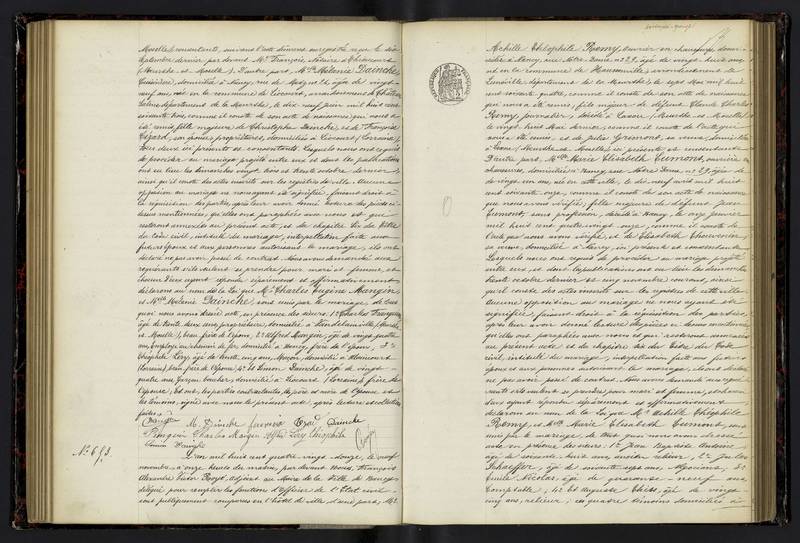 Moselle) consentante, suivant l'acte
septembre dernier par devant Me François, Notaire à
(Meurthe et Moselle). D'autre part, Mlle Mélanie Dainche
Cuisinière, domiciliée à Nancy, rue de âgée de vingt
neuf ans, née en la commune de Liocourt, arrondissement de Château
Salins, département de la Meurthe, le dix neuf juin mil huit cent
soixante trois, comme il conste de son acte de naissance qui nous a
été remis, fille majeure de Christophe Dainche, et de Françoise
son épouse, propriétaires, domiciliés à Liocourt (Lorraine)
tous deux ici présents et consentants. Lesquels nous ont requis
de procéder au mariage projeté entre eux et dont les publications
ont eu lieu les dimanches vingt trois et trente octobre dernier
ainsi qu'il conste des actes inscrits sur les registres de cette ville. Aucune
opposition au mariage ne nous ayant été signifiée, faisant droit à
la réquisition des parties, après leur avoir donné lecture des pièces ci-
dessus mentionnées, qu'elles ont paraphées avec nous et qui
resteront annexées au présent acte, et du chapitre six du titre
du code civil, intitulé du mariage, interpellation faite aux
futurs époux et aux personnes autorisant le mariage, ils ont
déclaré ne pas avoir passé de contrat. Nous avons demandé aux
requérants s'ils veulent se prendre pour mari et femme, et
chacun d'eux ayant répondu séparément et affirmativement
déclarons au nom de la loi que Mr Charles Eugène Mangin
et Mlle Mélanie Dainche, sont unis par le mariage. De tout
quoi nous avons dressé acte, en présence des sieurs, 1° Charles François
âgé de trente deux ans, propriétaire, domicilié à Vandelainville (Meurthe
et Moselle), beau frère de l'époux, 2° Alfred Mangin, âgé de vingt quatre
ans, Employé au chemin de fer, domicilié à Nancy, frère de l'époux, 3°
Théophile Lery, âgé de trente cinq ans, Maçon, domicilié à
(Lorraine), beau frère de l'épouse, 4° et Simon Dainche, âgé de vingt
quatre ans, Garçon boucher, domicilié à Liocourt (Lorraine), frère de
l'épouse; Et ont, les parties contractantes, les père et mère de l'épouse et
les témoins, signé avec nous le présent acte, après lecture et collation
faites.
M. Dainche Dainche
Mangin Charles Mangin Alfred Lery théophile
Simon Dainche
No 693.
L'an mil huit cent quatre vingt douze, le neuf
novembre, à onze heures du matin, par devant Nous, François
Alexandre Victor adjoint au Maire de la Ville de Nancy,
délégué pour remplir les fonctions d'officier de l'État civil
sont publiquement comparus en l'hôtel de ville, d'une part, Mr
Achille Théophile Remy, ouvrier en chaussures, domi-
cilié à Nancy, rue Notre Dame no 29, âgé de vingt huit ans
né en la commune de arrondissement de
Lunéville, département de la Meurthe, le Mai mil huit
cent soixante quatre, comme il conste de son acte de naissance
qui nous a été remis, fils majeur de défunt Claude Charles
Remy, journalier, décédé à (Meurthe et Moselle)
le vingt huit Mai dernier, comme il conste de l'acte qui
nous a été remis, et de Julie sa veuve, domiciliée
à (Meurthe et Moselle) ici présente et consentante
D'autre part, Mlle Marie Elisabeth Cumont, ouvrière en
chaussures, domiciliée à Nancy, rue Notre Dame no 29, âgée de
vingt un ans, née en cette ville, le neuf avril mil huit
cent soixante onze, comme il conste de son acte de naissance
que nous avons vérifié, fille majeure de défunt Jean
Cumont, sans profession, décédé à Nancy, le onze janvier
mil huit cent quatre vingt onze, comme il conste de
l'acte que nous avons vérifié, et de Elisabeth Thouvenin,
sa veuve, domiciliée à Nancy, ici présente et consentante
Lesquels nous ont requis de procéder au mariage projeté
entre eux et dont les publications ont eu lieu les dimanches
trente octobre dernier et six novembre courant, ainsi
qu'il conste des actes inscrits sur les registres de cette ville.
Aucune opposition au mariage ne nous ayant été
signifiée, faisant droit à la réquisition des parties,
après leur avoir donné lecture des pièces ci-dessus mentionnées
qu'elles ont paraphées avec nous et qui resteront annexées
au présent acte et du chapitre six du titre du Code
civil, intitulé du mariage, interpellation faite aux futurs
époux et aux personnes autorisant le mariage, ils ont déclaré
ne pas avoir passé de contrat. Nous avons demandé aux requé-
rants s'ils veulent se prendre pour mari et femme, et chacun
d'eux ayant répondu séparément et affirmativement
déclarons au nom de la loi que Mr Achille Théophile
Remy, et Mlle Marie Elisabeth Cumont, sont
unis par le mariage. De tout quoi nous avons dressé
acte en présence des sieurs, 1° Jean Baptiste
âgé de soixante huit ans, ancien relieur, 2° Jules
Schaeffer, âgé de soixante sept ans, Négociant, 3°
Emile Nicolas, âgé de quarante-neuf ans
Comptable, 4° et Auguste âgé de vingt
cinq ans, relieur; ces quatre témoins domiciliés à